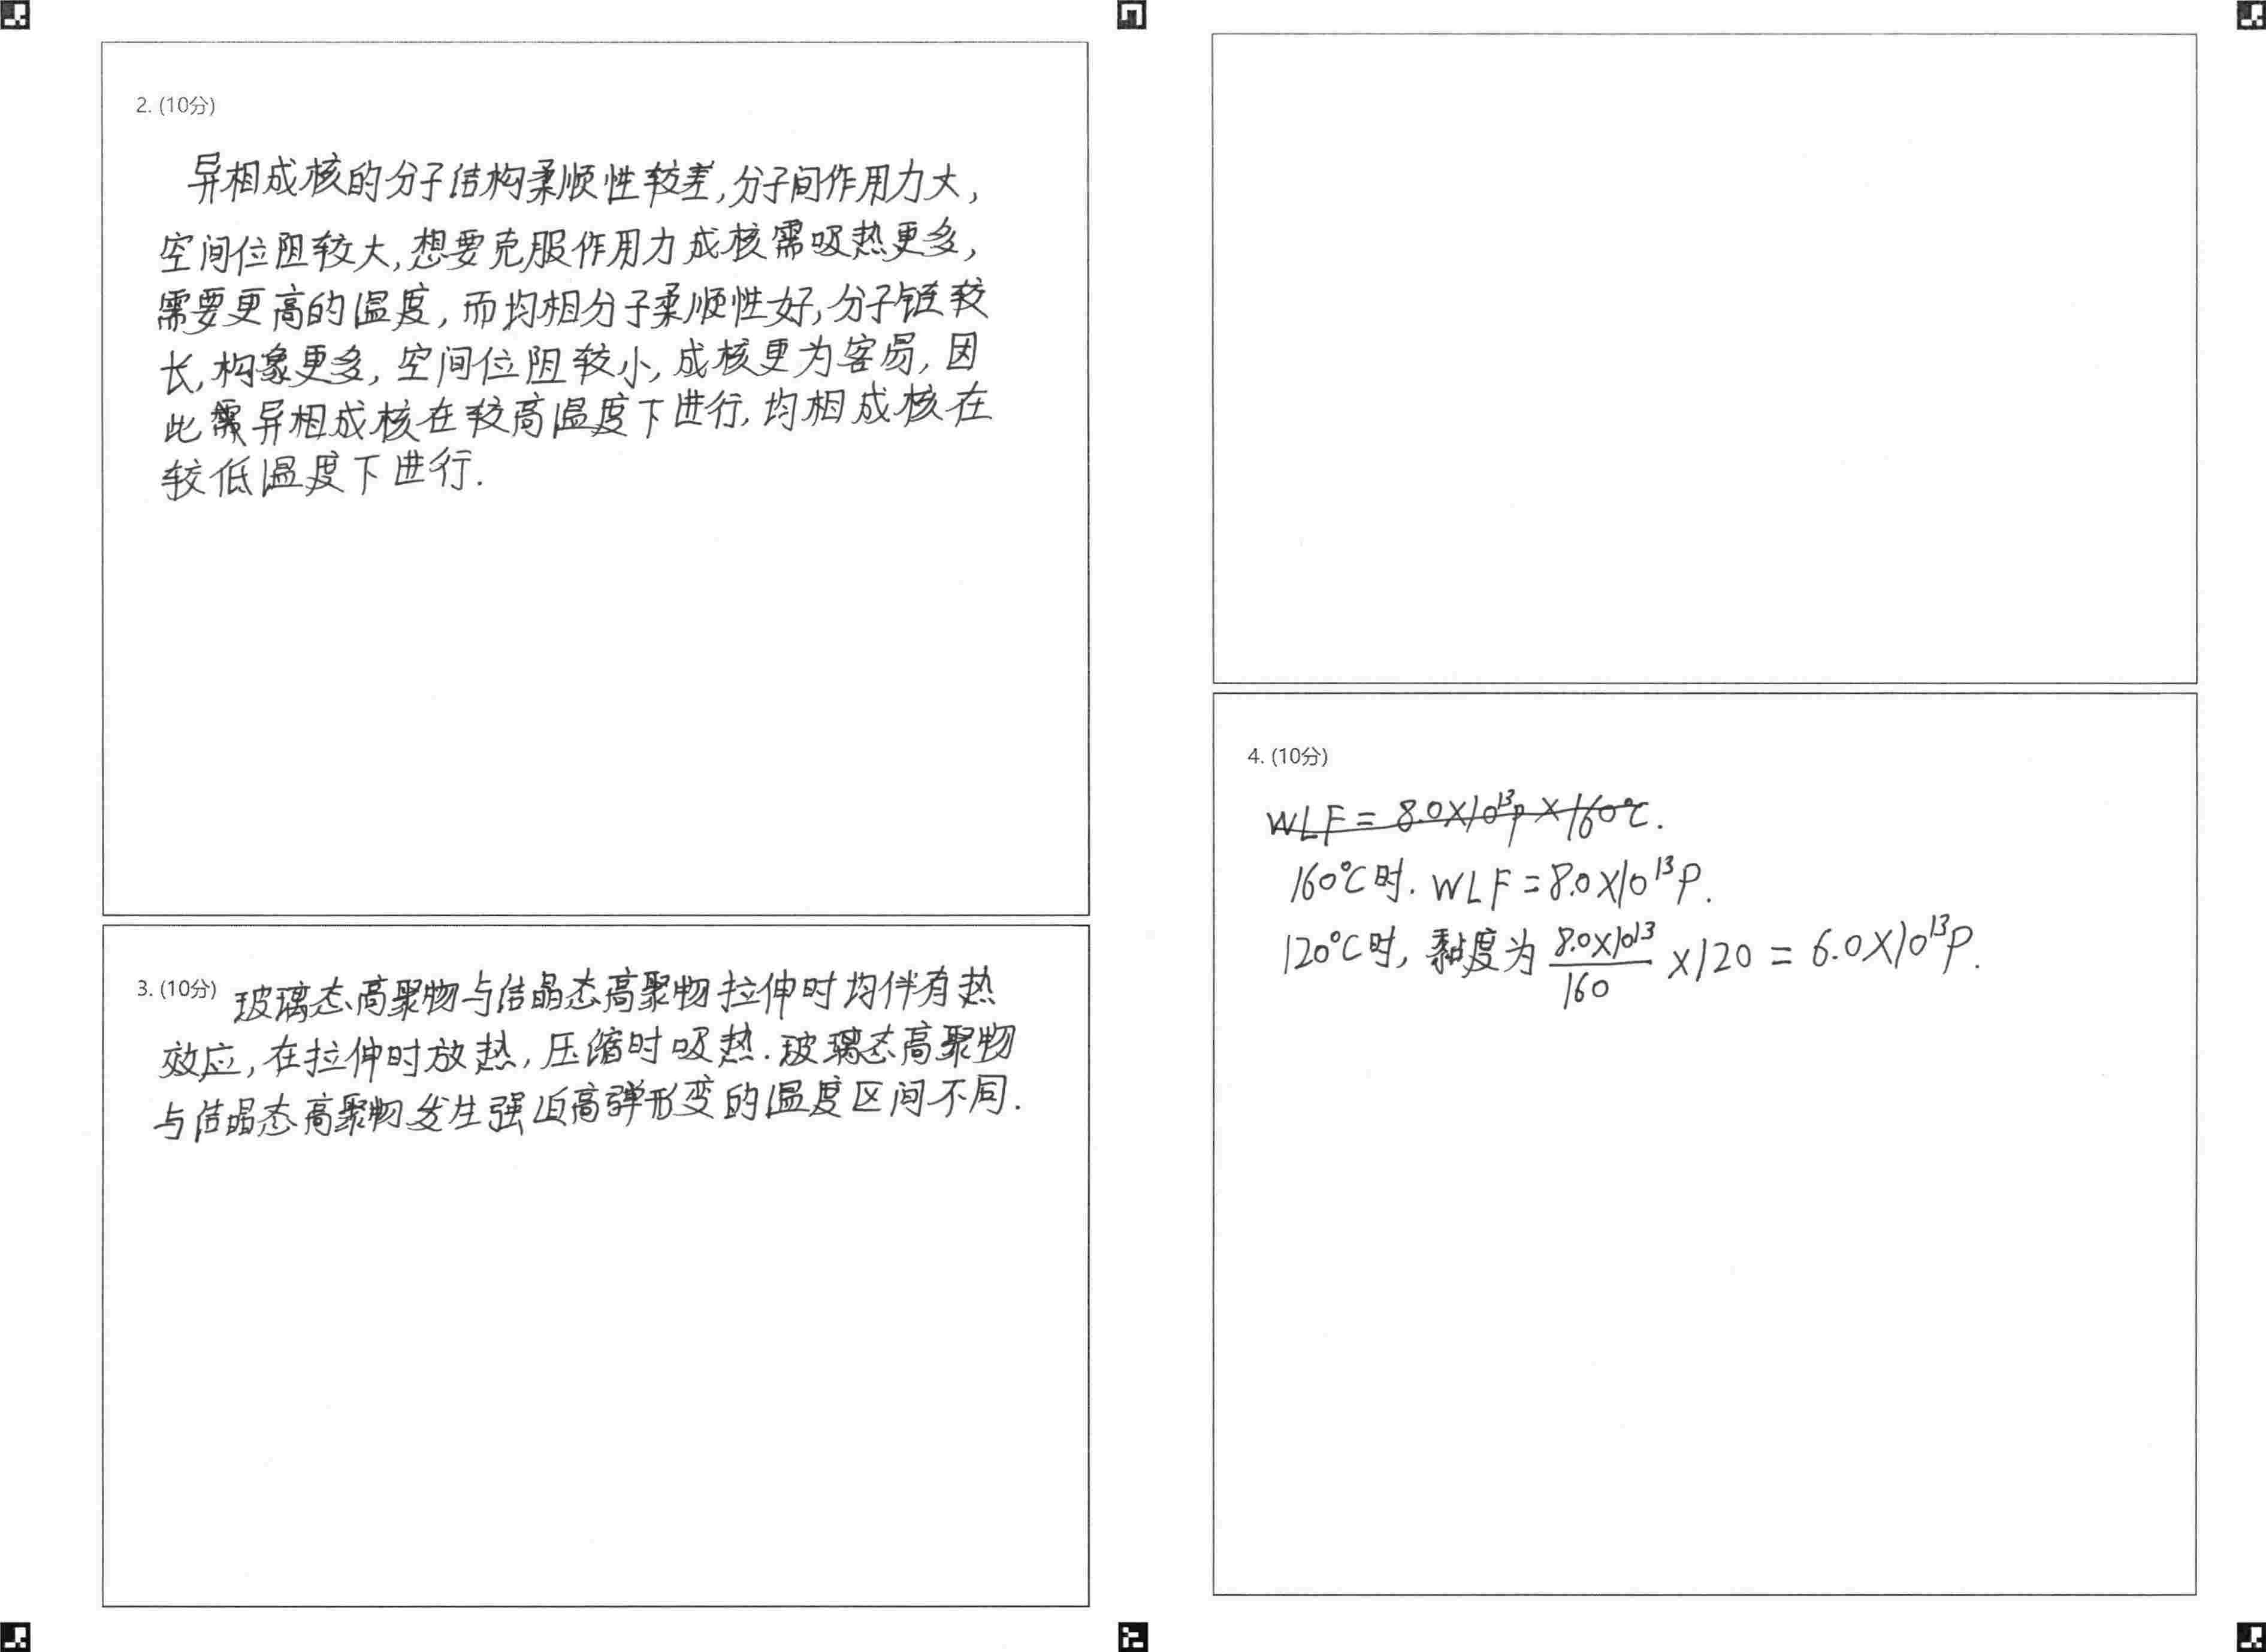 2. (10分)
异相成核的分子结构柔顺性较差,分子间作用力大,
空间位阻较大,想要克服作用力成核需吸热更多,
需要更高的温度,而均相分子柔顺性好,分子链较
长,构象更多,空间位阻较小,成核更为容易,因
此需异相成核在较高温度下进行,均相成核在
较低温度下进行.
3. (10分) 玻璃态高聚物与结晶态高聚物拉伸时均伴有热
效应,在拉伸时放热,压缩时吸热.玻璃态高聚物
与结晶态高聚物发生强迫高弹形变的温度区间不同.
4. (10分)
WLF = 8.0×10¹³P × 160℃.
160℃时. WLF = 8.0×10¹³P.
120℃时, 黏度为 8.0×10¹³/160 ×120 = 6.0×10¹³P.